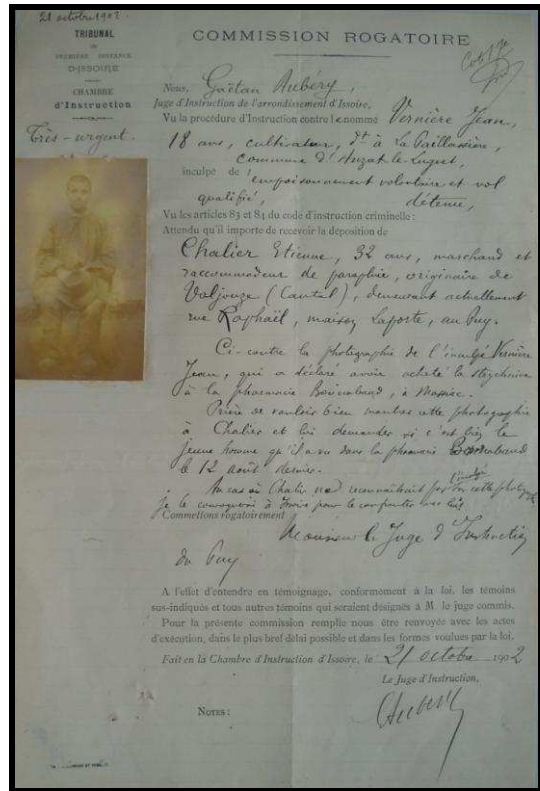 21 octobre 1902
TRIBUNAL
DE
PREMIÈRE INSTANCE
D'ISSOIRE
CHAMBRE
d'Instruction
Très-urgent.
COMMISSION ROGATOIRE
Nous, Gaëtan Aubéry,
Juge d'Instruction de l'arrondissement d'Issoire,
Vu la procédure d'Instruction contre le nommé Vernière Jean,
18 ans, cultivateur, dt à La Paillassère,
commune d'Anzat le Luguet,
inculpé de empoisonnement volontaire et vol
qualifié, détenu,
Vu les articles 83 et 84 du code d'instruction criminelle :
Attendu qu'il importe de recevoir la déposition de
Chalier Etienne, 32 ans, marchand et
raccommodeur de parapluie, originaire de
Valjouze (Cantal), demeurant actuellement
rue Raphaël, maison Laporte, au Puy.
Ci-contre la photographie de l'inculpé Vernière
Jean, qui a déclaré avoir acheté la strychnine
à la pharmacie à Massiac.
Prière de vouloir bien montrer cette photographie
à Chalier et lui demander si c'est bien le
jeune homme qu'il a vu dans la pharmacie
le 12 août dernier.
Au cas où Chalier ne reconnaîtrait pas l'inculpé sur cette photog
je le convoquerai à Issoire pour le confronter avec lui.
Commettons rogatoirement
Monsieur le Juge d'Instruction
du Puy
A l'effet d'entendre en témoignage, conformément à la loi, les témoins
sus-indiqués et tous autres témoins qui seraient désignés à M. le juge commis.
Pour la présente commission remplie nous être renvoyée avec les actes
d'exécution, dans le plus bref délai possible et dans les formes voulues par la loi.
Fait en la Chambre d'Instruction d'Issoire, le 21 octobre 1902
Le Juge d'Instruction,
Aubéry
NOTES :